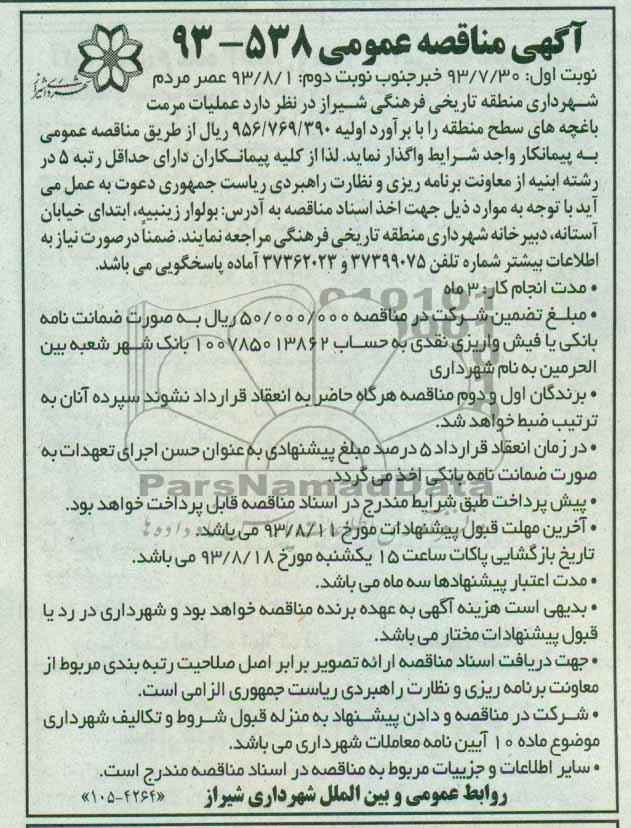 آگهی مناقصه عمومی ۵۳۸- ۹۳
نوبت اول: ۹۳/۷/۳۰ خبرجنوب نوبت دوم: ۹۳/۸/۱ عصر مردم
شهرداری منطقه تاریخی فرهنگی شیراز در نظر دارد عملیات مرمت
باغچه های سطح منطقه را با برآورد اولیه ۹۵۶/۷۶۹/۳۹۰ ریال از طریق مناقصه عمومی
به پیمانکار واجد شرایط واگذار نماید. لذا از کلیه پیمانکاران دارای حداقل رتبه ۵ در
رشته ابنیه از معاونت برنامه ریزی و نظارت راهبردی ریاست جمهوری دعوت به عمل می
آید با توجه به موارد ذیل جهت اخذ اسناد مناقصه به آدرس: بولوار زینبیه، ابتدای خیابان
آستانه، دبیرخانه شهرداری منطقه تاریخی فرهنگی مراجعه نمایند. ضمنا درصورت نیاز به
اطلاعات بیشتر شماره تلفن ۳۷۳۹۹۰۷۵ و ۳۷۳۶۲۰۲۳ آماده پاسخگویی می باشد.
• مدت انجام کار: ۳ ماه
• مبلغ تضمین شرکت در مناقصه ۵۰/۰۰۰/۰۰۰ ریال به صورت ضمانت نامه
بانکی یا فیش واریزی نقدی به حساب ۱۰۰۷۸۵۰۱۳۸۶۲ بانک شهر شعبه بین
الحرمین به نام شهرداری
• برندگان اول و دوم مناقصه هرگاه حاضر به انعقاد قرارداد نشوند سپرده آنان به
ترتیب ضبط خواهد شد.
• در زمان انعقاد قرارداد ۵ درصد مبلغ پیشنهادی به عنوان حسن اجرای تعهدات به
صورت ضمانت نامه بانکی اخذ می گردد.
ParsNamadData
• پیش پرداخت طبق شرایط مندرج در اسناد مناقصه قابل پرداخت خواهد بود.
• آخرین مهلت قبول پیشنهادات مورخ ۹۳/۸/۱۷ می باشد.
تاریخ بازگشایی پاکات ساعت ۱۵ یکشنبه مورخ ۹۳/۸/۱۸ می باشد.
• مدت اعتبار پیشنهادها سه ماه می باشد.
• بدیهی است هزینه آگهی به عهده برنده مناقصه خواهد بود و شهرداری در رد یا
قبول پیشنهادات مختار می باشد.
• جهت دریافت اسناد مناقصه ارائه تصویر برابر اصل صلاحیت رتبه بندی مربوط از
معاونت برنامه ریزی و نظارت راهبردی ریاست جمهوری الزامی است.
• شرکت در مناقصه و دادن پیشنهاد به منزله قبول شروط و تکالیف شهرداری
موضوع ماده ۱۰ آیین نامه معاملات شهرداری می باشد.
• سایر اطلاعات و جزییات مربوط به مناقصه در اسناد مناقصه مندرج است.
روابط عمومی و بین الملل شهرداری شیراز «۱۰۵-۴۲۶۴»